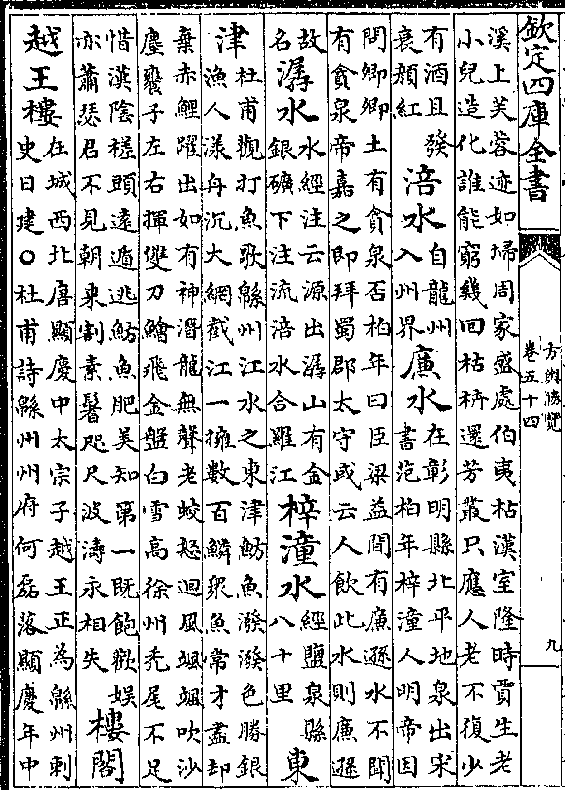 欽定四庫全書
方輿勝覽
卷五十四
九
溪上芙蓉迹如掃周家盛處伯夷枯漢室隆時賈生老
小兒造化誰能窮幾回枯枿還芳叢只應人老不復少
有酒且發
衰顔紅
涪水
自龍州
入州界
廉水
在彰明縣北平地泉出宋
書范柏年梓潼人明帝因
問卿卿土有貪泉否柏年曰臣梁益間有廉遜水不聞
有貪泉帝嘉之即拜蜀郡太守或云人飲此水則廉遜
故
名
潺水
水經注云源出潺山有金
銀礦下注流涪水合羅江
梓潼水
經鹽泉縣
八十里
東
津
杜甫觀打魚歌緜州江水之東津魴魚潑潑色勝銀
漁人漾舟沉大網截江一擁數百鱗衆魚常才盡却
棄赤鯉躍出如有神潛龍無聲老蛟怒迴風颯颯吹沙
塵饔子左右揮雙刀鱠飛金盤白雪高徐州禿尾不足
惜漢陰槎頭遠遁逃魴魚肥美知第一既飽歡娱
亦蕭瑟君不見朝來割素鬐咫尺波濤永相失
樓閣
越王樓
在城西北唐顯慶中太宗子越王正為緜州刺
史日建○杜甫詩緜州州府何磊落顯慶年中